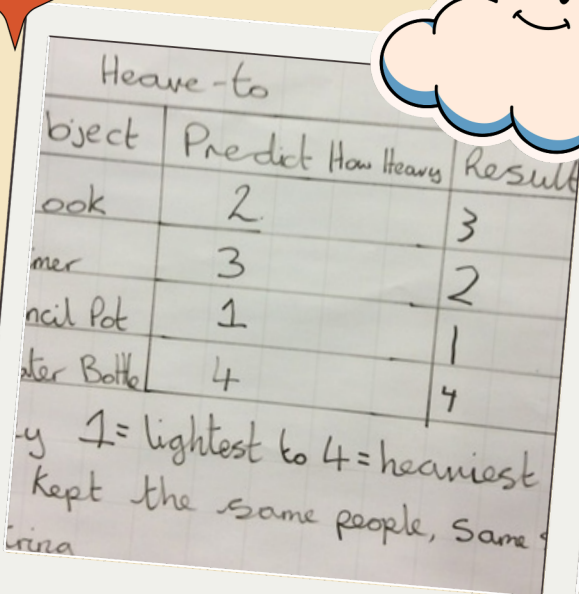 Heave-to
bject Predict How Heavy Result
ook 2 3
mer 3 2
ncil Pot 1 1
ater Bottle 4 4
y 1 = lightest to 4 = heaviest
Kept the same people, same